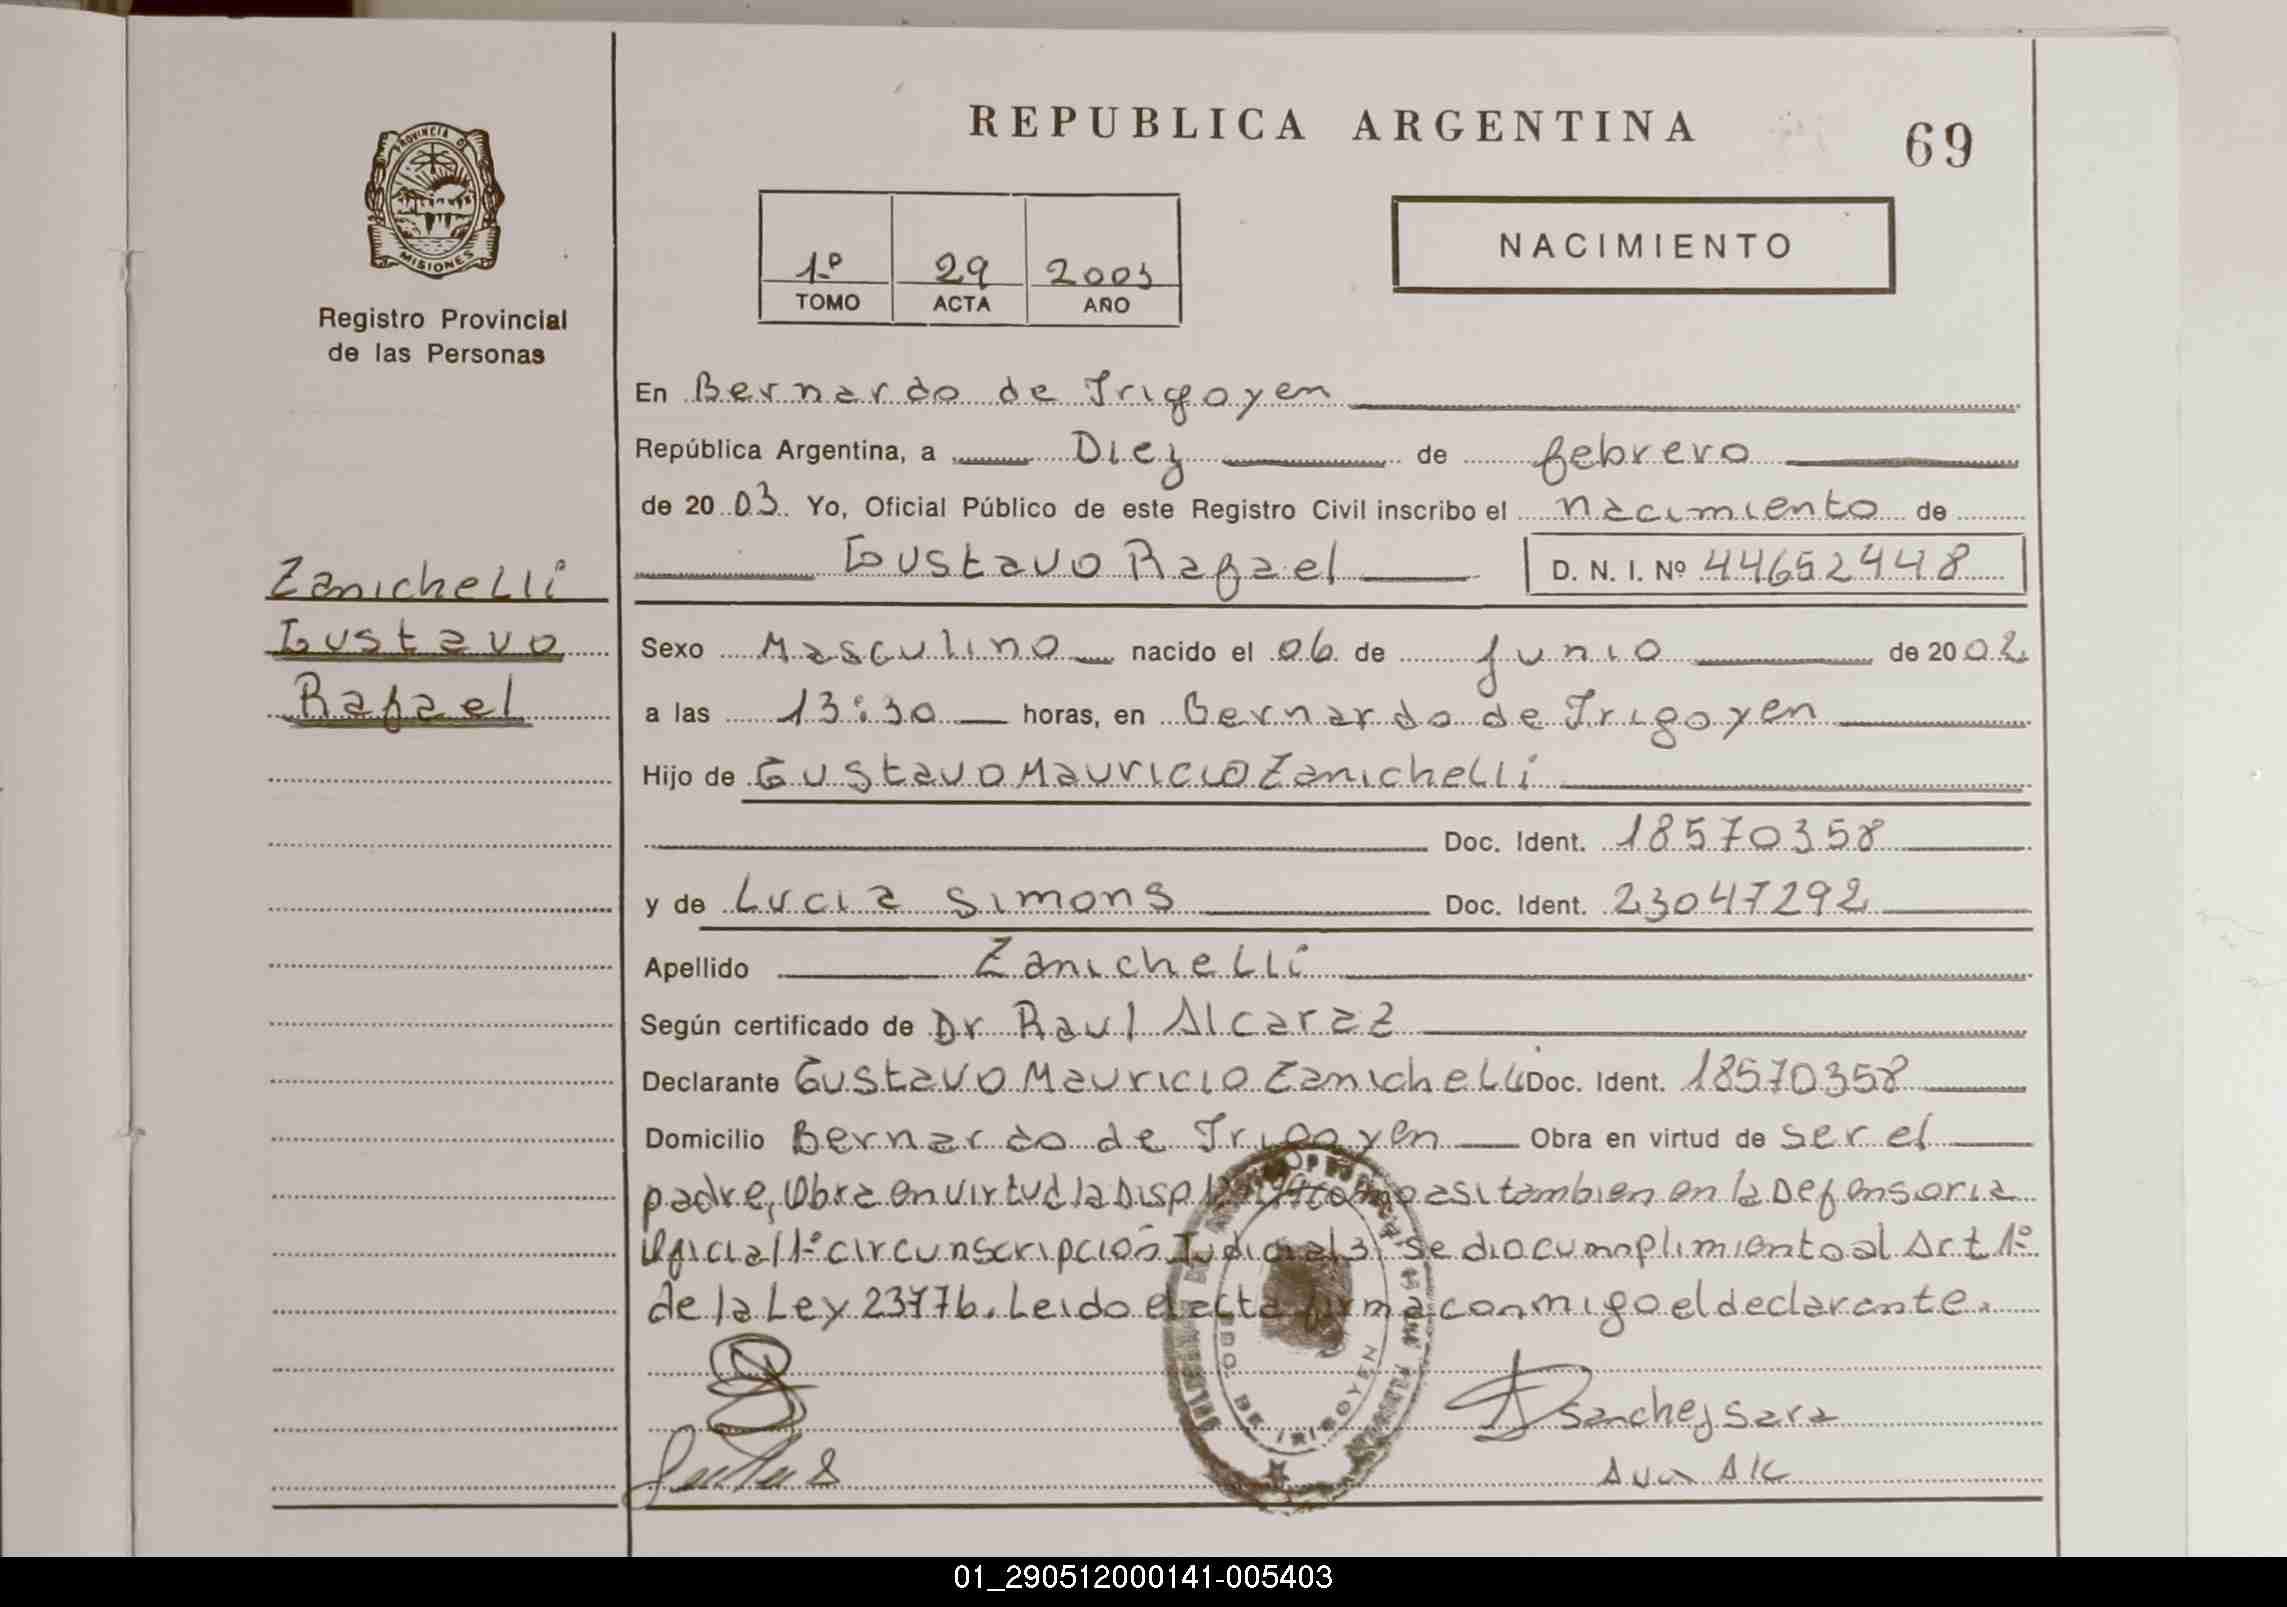 REPUBLICA ARGENTINA
69
PROVINCIA DE
MISIONES
Registro Provincial
de las Personas
NACIMIENTO
1º 29 2003
TOMO ACTA AÑO
En Bernardo de Irigoyen
República Argentina, a Diez de febrero
de 2003 Yo, Oficial Público de este Registro Civil inscribo el nacimiento de
Gustavo Rafael D. N. I. Nº 44652448
Zanichelli
Gustavo
Rafael
Sexo Masculino nacido el 06 de junio de 2002
a las 13:30 horas, en Bernardo de Irigoyen
Hijo de Gustavo Mauricio Zanichelli
Doc. Ident. 18570358
y de Lucia Simons Doc. Ident. 23047292
Apellido Zanichelli
Según certificado de Dr Raul Alcaraz
Declarante Gustavo Mauricio Zanichelli Doc. Ident. 18570358
Domicilio Bernardo de Irigoyen Obra en virtud de ser el
padre, Obra en virtud la Disp como asi tambien en la Defensoria
Oficial 1º circunscripcion Judicial 3) Se dio cumplimiento al Art 1º
de la Ley 23776. Leido el acta firma conmigo el declarante.
BDO. DE IRIGOYEN
Sanchez Sara
01_290512000141-005403